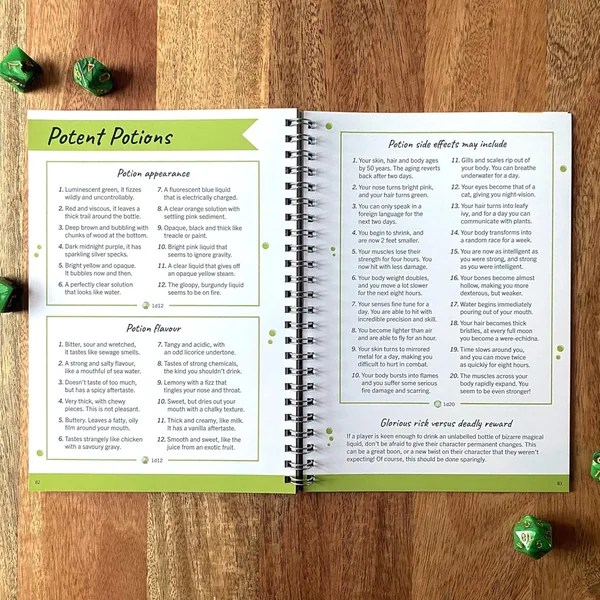 Potent Potions
Potion appearance
1. Luminescent green, it fizzes
wildly and uncontrollably.
2. Red and viscous, it leaves a
thick trail around the bottle.
3. Deep brown and bubbling with
chunks of wood at the bottom.
4. Dark midnight purple, it has
sparkling silver specks.
5. Bright yellow and opaque.
It bubbles now and then.
6. A perfectly clear solution
that looks like water.
7. A fluorescent blue liquid
that is electrically charged.
8. A clear orange solution with
settling pink sediment.
9. Opaque, black and thick like
treacle or paint.
10. Bright pink liquid that
seems to ignore gravity.
11. A clear liquid that gives off
an opaque yellow steam.
12. The gloopy, burgundy liquid
seems to be on fire.
1d12
Potion flavour
1. Bitter, sour and wretched,
it tastes like sewage smells.
2. A strong and salty flavour,
like a mouthful of sea water.
3. Doesn't taste of too much,
but has a spicy aftertaste.
4. Very thick, with chewy
pieces. This is not pleasant.
5. Buttery. Leaves a fatty, oily
film around your mouth.
6. Tastes strangely like chicken
with a savoury gravy.
7. Tangy and acidic, with
an odd licorice undertone.
8. Tastes of strong chemicals,
the kind you shouldn't drink.
9. Lemony with a fizz that
tingles your nose and throat.
10. Sweet, but dries out your
mouth with a chalky texture.
11. Thick and creamy, like milk.
It has a vanilla aftertaste.
12. Smooth and sweet, like the
juice from an exotic fruit.
1d12
82
Potion side effects may include
1. Your skin, hair and body ages
by 50 years. The aging reverts
back after two days.
2. Your nose turns bright pink,
and your hair turns green.
3. You can only speak in a
foreign language for the
next two days.
4. You begin to shrink, and
are now 2 feet smaller.
5. Your muscles lose their
strength for four hours. You
now hit with less damage.
6. Your body weight doubles,
and you move a lot slower
for the next eight hours.
7. Your senses fine tune for a
day. You are able to hit with
incredible precision and skill.
8. You become lighter than air
and are able to fly for an hour.
9. Your skin turns to mirrored
metal for a day, making you
difficult to hurt in combat.
10. Your body bursts into flames
and you suffer some serious
fire damage and scarring.
11. Gills and scales rip out of
your body. You can breathe
underwater for a day.
12. Your eyes become that of a
cat, giving you night-vision.
13. Your hair turns into leafy
ivy, and for a day you can
communicate with plants.
14. Your body transforms into
a random race for a week.
15. You are now as intelligent as
you were strong, and strong
as you were intelligent.
16. Your bones become almost
hollow, making you more
dexterous, but weaker.
17. Water begins immediately
pouring out of your mouth.
18. Your hair becomes thick
bristles, at every full moon
you become a were-echidna.
19. Time slows around you,
and you can move twice
as quickly for eight hours.
20. The muscles across your
body rapidly expand. You
seem to be even stronger!
1d20
Glorious risk versus deadly reward
If a player is keen enough to drink an unlabelled bottle of bizarre magical
liquid, don't be afraid to give their character permanent changes. This
can be a great boon, or a new twist on their character that they weren't
expecting! Of course, this should be done sparingly.